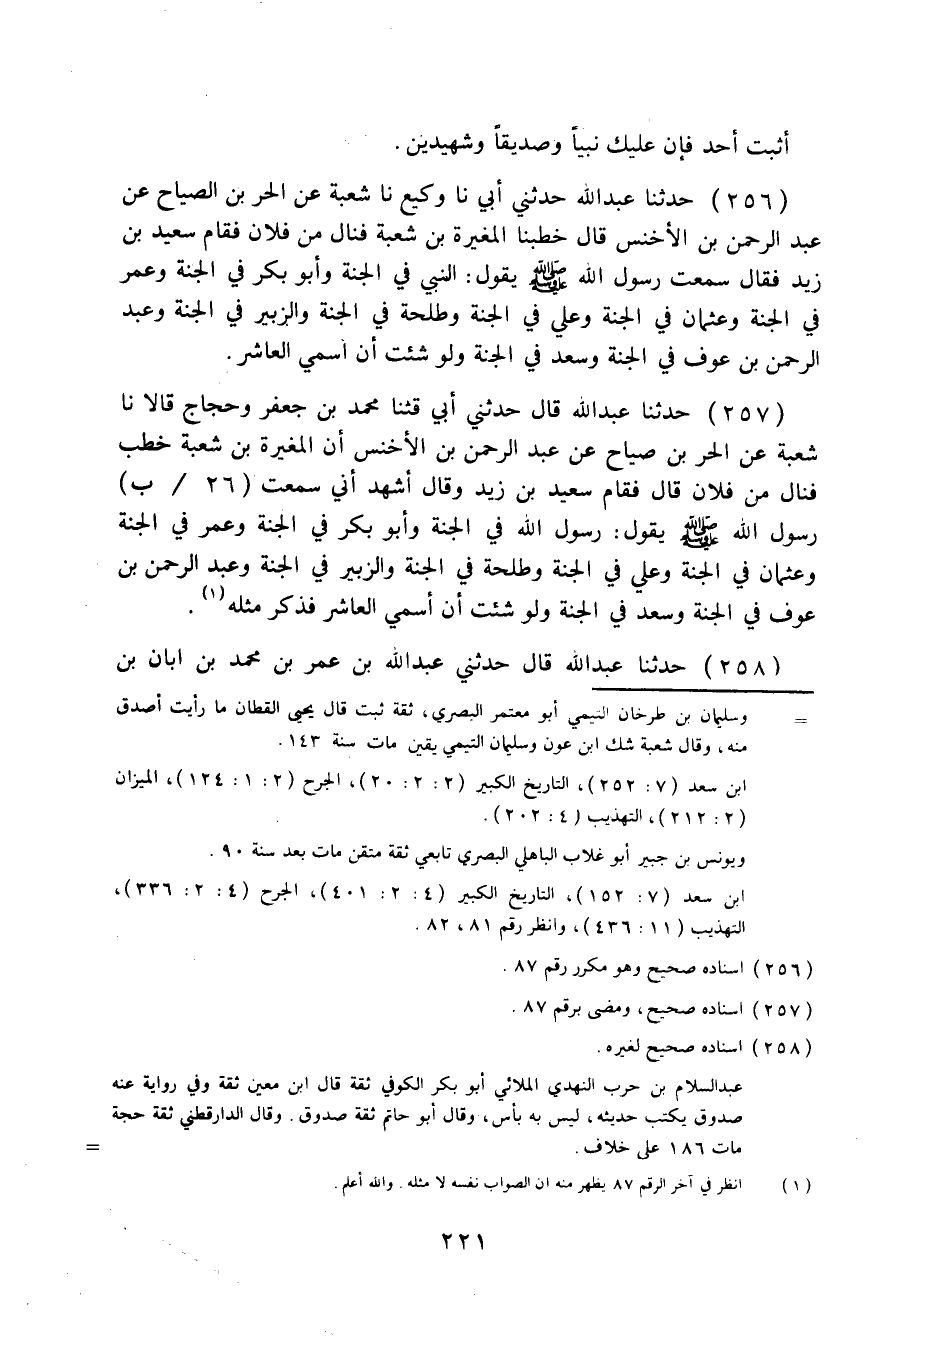 أثبت أحد فإن عليك نبياً وصديقاً وشهيدين .
(٢٥٦) حدثنا عبدالله حدثني أبي نا وكيع نا شعبة عن الحر بن الصياح عن
عبد الرحمن بن الأخنس قال خطبنا المغيرة بن شعبة فنال من فلان فقام سعيد بن
زيد فقال سمعت رسول الله ﷺ يقول: النبي في الجنة وأبو بكر في الجنة وعمر
في الجنة وعثمان في الجنة وعلي في الجنة وطلحة في الجنة والزبير في الجنة وعبد
الرحمن بن عوف في الجنة وسعد في الجنة ولو شئت أن أسمي العاشر .
(٢٥٧) حدثنا عبدالله قال حدثني أبي قثنا محمد بن جعفر وحجاج قالا نا
شعبة عن الحر بن صياح عن عبد الرحمن بن الأخنس أن المغيرة بن شعبة خطب
فنال من فلان قال فقام سعيد بن زيد وقال أشهد أني سمعت (٢٦ / ب)
رسول الله ﷺ يقول: رسول الله في الجنة وأبو بكر في الجنة وعمر في الجنة
وعثمان في الجنة وعلي في الجنة وطلحة في الجنة والزبير في الجنة وعبد الرحمن بن
عوف في الجنة وسعد في الجنة ولو شئت أن أسمي العاشر فذكر مثله(١) .
(٢٥٨) حدثنا عبدالله قال حدثني عبدالله بن عمر بن محمد بن ابان بن
= وسليمان بن طرخان التيمي أبو معتمر البصري، ثقة ثبت قال يحيى القطان ما رأيت أصدق
منه، وقال شعبة شك ابن عون وسليمان التيمي يقين مات سنة ١٤٣ .
ابن سعد (٧: ٢٥٢)، التاريخ الكبير (٢: ٢: ٢٠)، الجرح (٢: ١: ١٢٤)، الميزان
(٢: ٢١٢)، التهذيب (٤: ٢٠٢) .
ويونس بن جبير أبو غلاب الباهلي البصري تابعي ثقة متقن مات بعد سنة ٩٠ .
ابن سعد (٧: ١٥٢)، التاريخ الكبير (٤: ٢: ٤٠١)، الجرح (٤: ٢: ٣٣٦)،
التهذيب (١١: ٤٣٦)، وانظر رقم ٨١، ٨٢ .
(٢٥٦) اسناده صحيح وهو مكرر رقم ٨٧ .
(٢٥٧) اسناده صحيح، ومضى برقم ٨٧ .
(٢٥٨) اسناده صحيح لغيره .
عبدالسلام بن حرب النهدي الملائي أبو بكر الكوفي ثقة قال ابن معين ثقة وفي رواية عنه
صدوق يكتب حديثه، ليس به بأس، وقال أبو حاتم ثقة صدوق . وقال الدارقطني ثقة حجة
مات ١٨٦ على خلاف . =
(١) انظر في آخر الرقم ٨٧ يظهر منه ان الصواب نفسه لا مثله . والله أعلم .
٢٢١